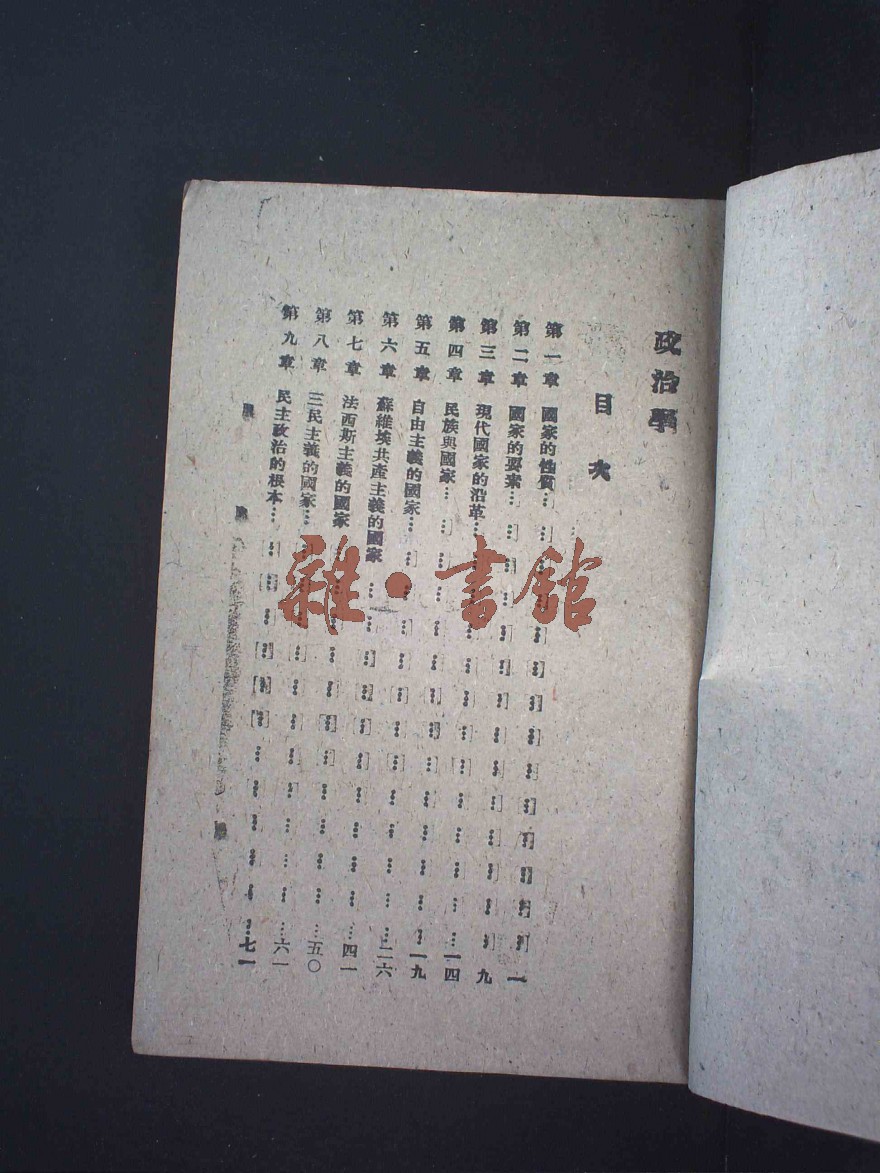 政治學
目次
第一章 國家的性質…………一
第二章 國家的要素…………九
第三章 現代國家的沿革…………一四
第四章 民族與國家…………一九
第五章 自由主義的國家…………二六
第六章 蘇維埃共產主義的國家…………四一
第七章 法西斯主義的國家…………五〇
第八章 三民主義的國家…………六一
第九章 民主政治的根本…………七一
雜·書館